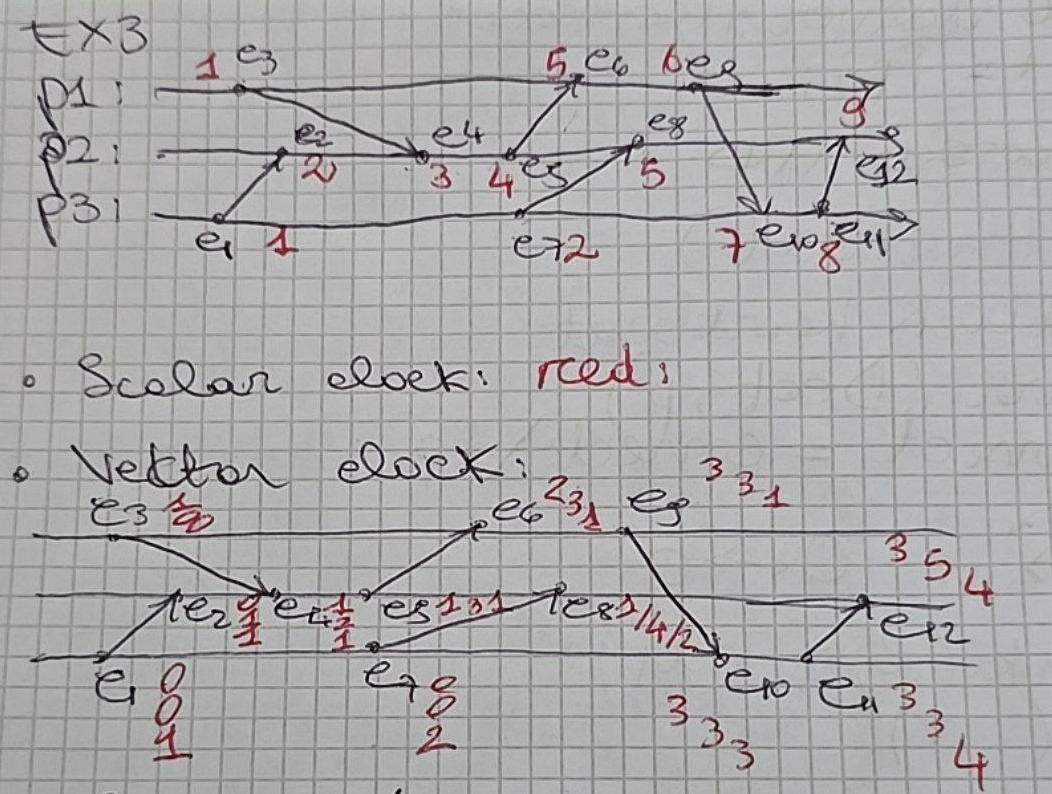 EX3
1 e3 5 e6 6 e9
p1:
p2: e2 2 e4 3 4 e5 e8 5 9 e12
p3:
e1 1 e7 2 7 e10 8 e11
• Scalar clock: red:
• Vektor clock:
e3 e6 2 3 1 e9 3 3 1
e2 0 1 1 e4 1 2 1 e5 1 3 1 e8 1/4/2 e12 3 5 4
e1 0 0 1 e7 0 0 2 e10 3 3 3 e11 3 3 4